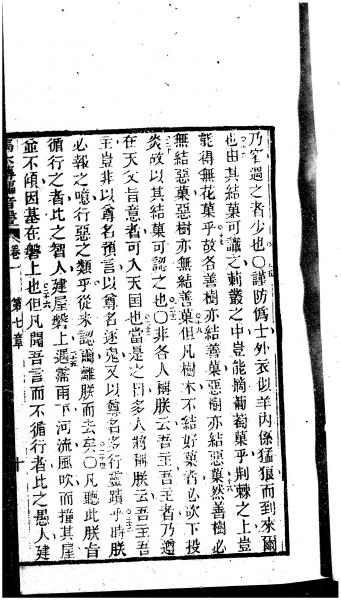 乃窄遇之者少也〇謹防僞士外衣似羊內係猛狼而到來爾
也由其結菓可識之莿叢之中豈能摘葡萄菓乎荆棘之上豈
能得無花菓乎故各善樹亦結善菓惡樹亦結惡菓然善樹必
無結惡菓惡樹亦無結善菓但凡樹木不結好菓者必砍下投
炎故以其結菓可認之也〇非各人稱朕云吾主吾主者乃遵
在天父旨意者可入天国也當是之日多人將稱朕云吾主吾
主豈非以尊名預言以尊名逐鬼又以尊名多行靈蹟乎時朕
必報之噫行惡之類乎從來認爾離朕而去矣〇凡聽此朕旨
循行之者比之智人建屋磐上遇霈雨下河流風吹而撞其屋
並不傾因基在磐上也但凡聞吾言而不循行者比之愚人建
卷一 第七章 十